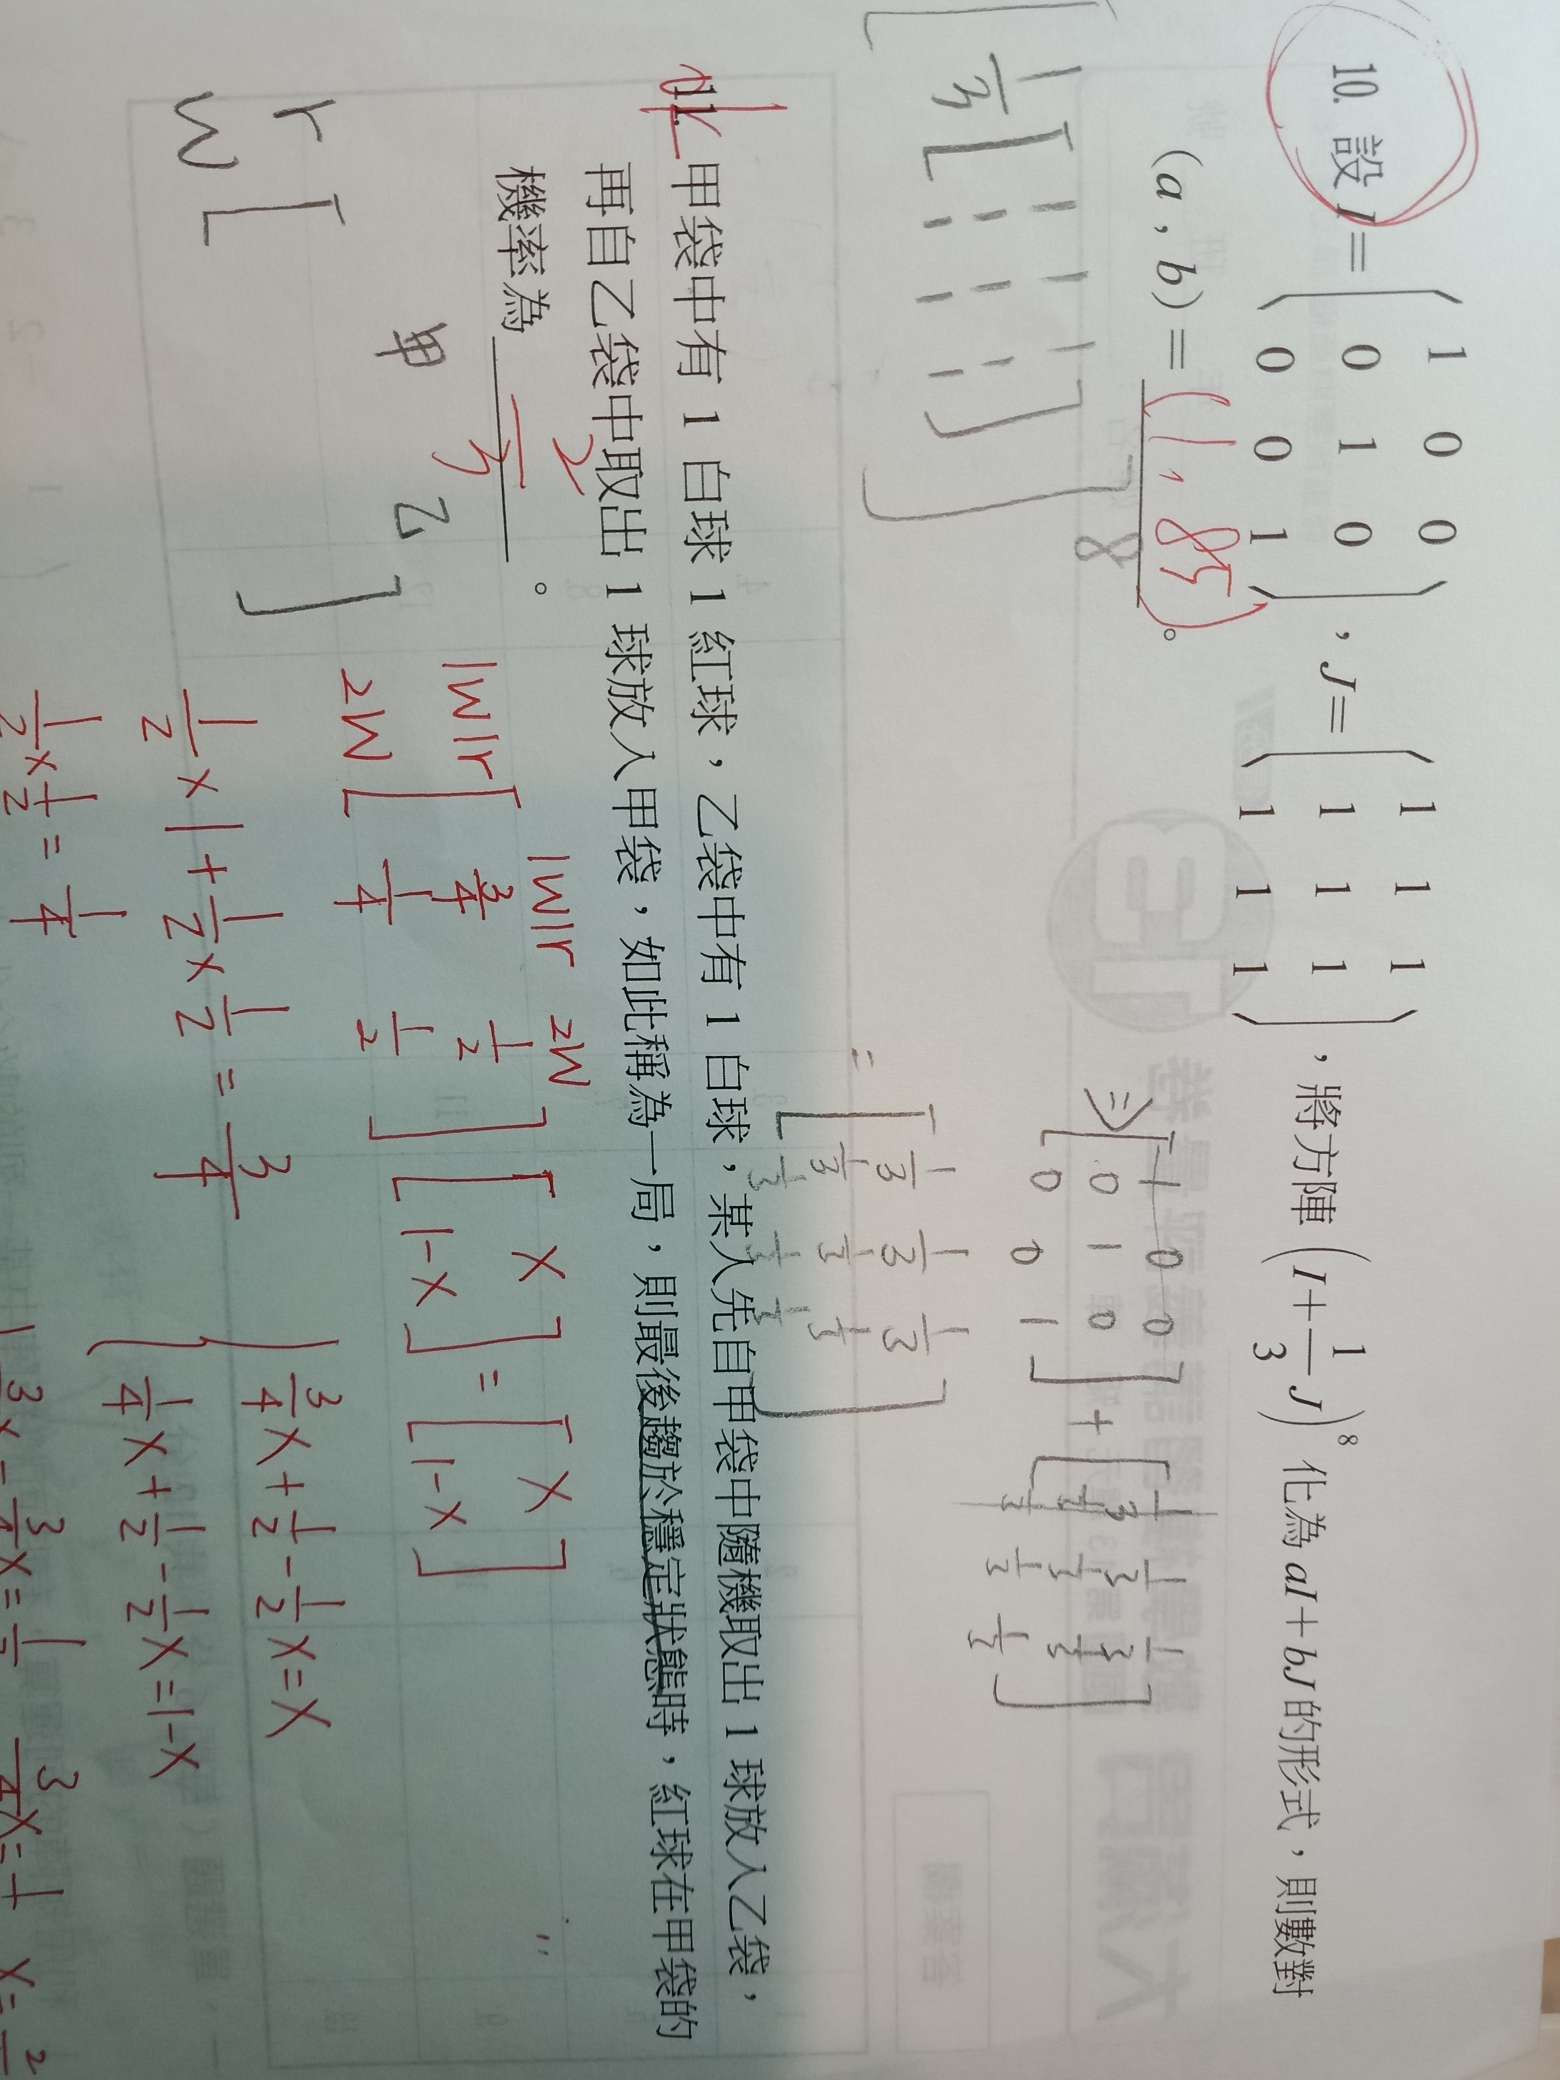 10. 設 I = ( 1 0 0 / 0 1 0 / 0 0 1 ) , J = ( 1 1 1 / 1 1 1 / 1 1 1 ) ,將方陣 ( I + 1/3 J )⁸ 化為 aI + bJ 的形式,則數對
(a , b) = (1, 85) 。
⇒ [ 1 0 0 / 0 1 0 / 0 0 1 ] + [ 1/3 1/3 1/3 / 1/3 1/3 1/3 / 1/3 1/3 1/3 ]
[ 1/3 [ ] ] 8
= [ 1/3 1/3 1/3 / 1/3 1/3 1/3 / 1/3 1/3 1/3 ]
11. 甲袋中有 1 白球 1 紅球,乙袋中有 1 白球,某人先自甲袋中隨機取出 1 球放入乙袋,
再自乙袋中取出 1 球放入甲袋,如此稱為一局,則最後趨於穩定狀態時,紅球在甲袋的
機率為 2/3 。
甲 乙
r
w [ ]
1W1r 2W
1W1r [ 3/4 1/2
2W 1/4 1/2 ] [ x / 1-x ] = [ x / 1-x ]
1/2 × 1 + 1/2 × 1/2 = 3/4
{ 3/4 x + 1/2 - 1/2 x = x
1/4 x + 1/2 - 1/2 x = 1-x
1/2 × 1/2 = 1/4